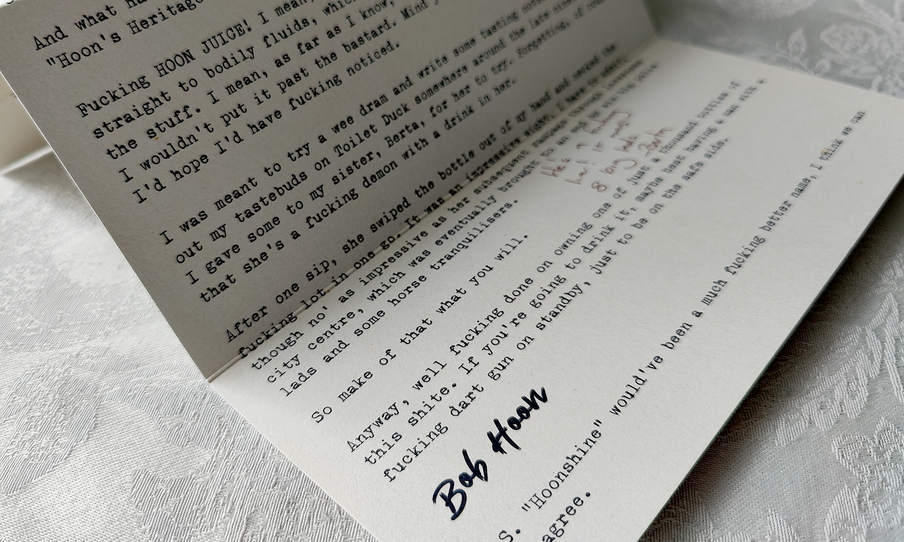 And what ha
"Hoon's Heritage
Fucking HOON JUICE! I mean,
straight to bodily fluids, whic
the stuff. I mean, as far as I know,
I wouldn't put it past the bastard. Mind y
I'd hope I'd have fucking noticed.
I was meant to try a wee dram and write some tasting notes
out my tastebuds on Toilet Duck somewhere around the late nine
I gave some to my sister, Berta, for her to try. Forgetting, of cour
that she's a fucking demon with a drink in her.
After one sip, she swiped the bottle out of my hand and necked the
fucking lot in one go. It was an impressive sight, I have to
though no' as impressive as her subsequent
city centre, which was eventually brought to an end by
lads and some horse tranquilisers.
8 big lads
So make of that what you will.
Anyway, well fucking done on owning one of just a thousand bottles of
this shite. If you're going to drink it, maybe best having a man with a
fucking dart gun on standby, just to be on the safe side.
Bob Hoon
S. "Hoonshine" would've been a much fucking better name, I think we can
agree.